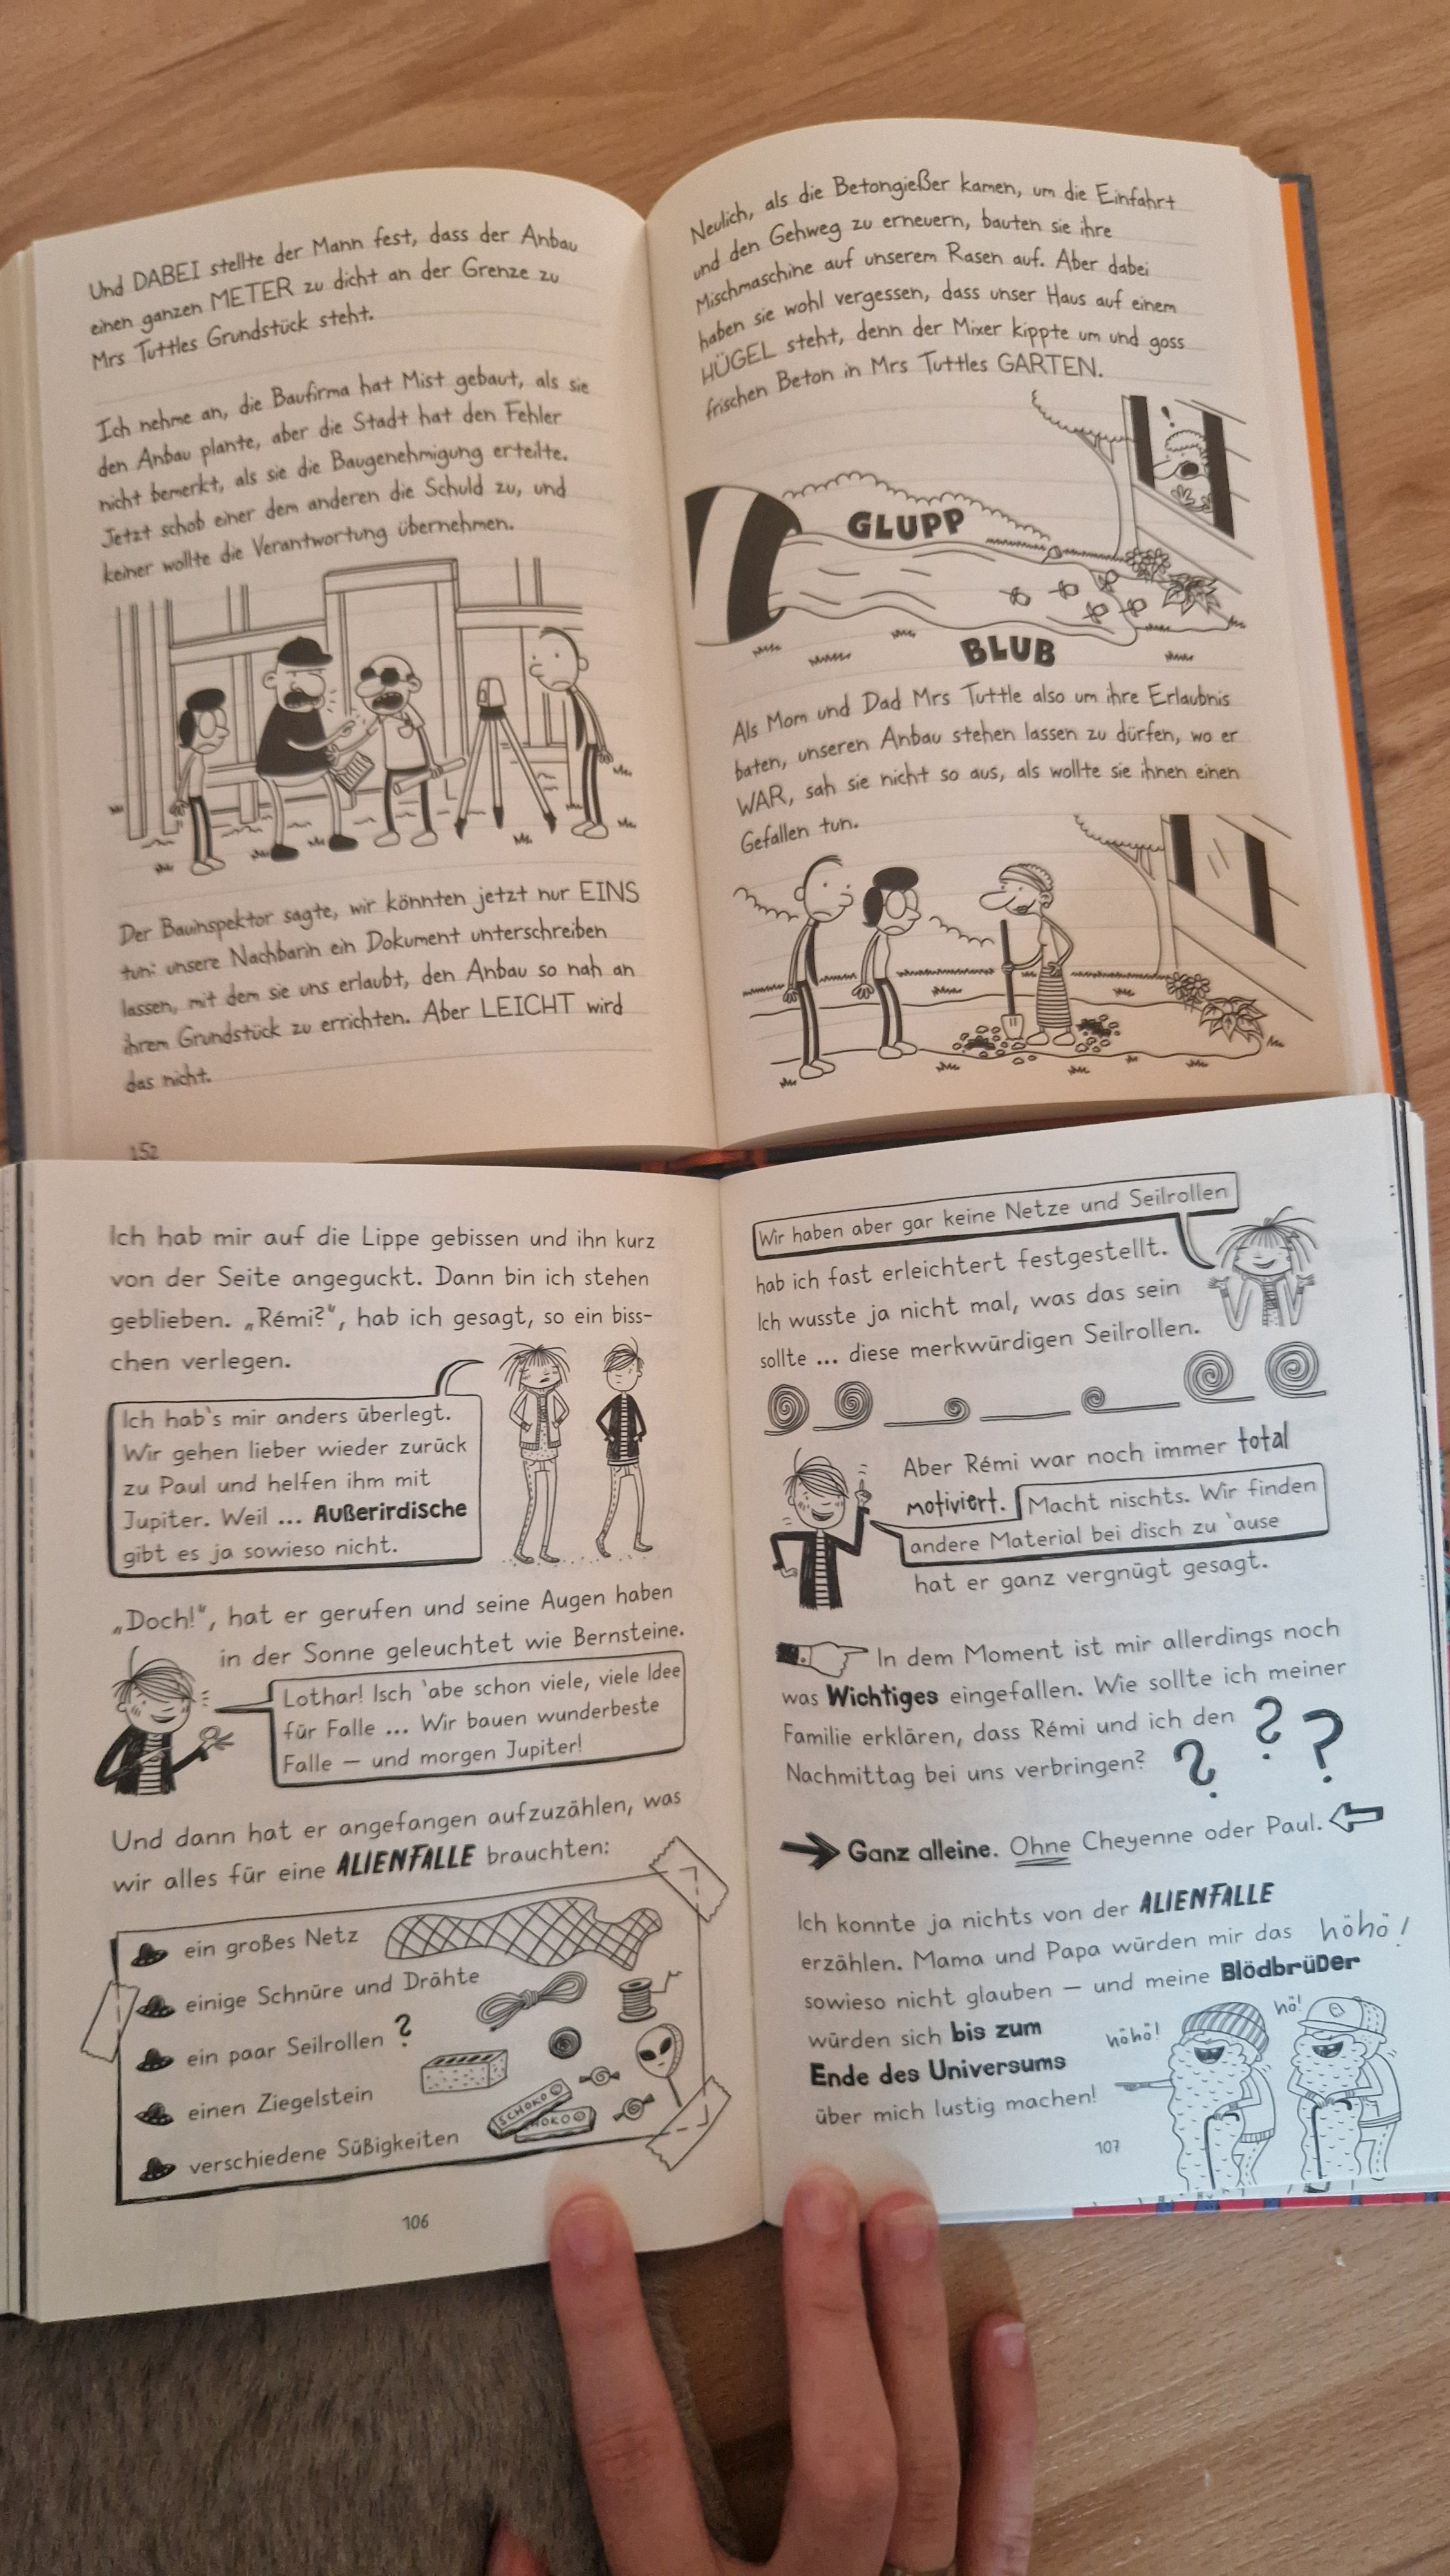 Und DABEI stellte der Mann fest, dass der Anbau
einen ganzen METER zu dicht an der Grenze zu
Mrs Tuttles Grundstück steht.
Ich nehme an, die Baufirma hat Mist gebaut, als sie
den Anbau plante, aber die Stadt hat den Fehler
nicht bemerkt, als sie die Baugenehmigung erteilte.
Jetzt schob einer dem anderen die Schuld zu, und
keiner wollte die Verantwortung übernehmen.
Der Bauinspektor sagte, wir könnten jetzt nur EINS
tun: unsere Nachbarin ein Dokument unterschreiben
lassen, mit dem sie uns erlaubt, den Anbau so nah an
ihrem Grundstück zu errichten. Aber LEICHT wird
das nicht.
152
Neulich, als die Betongießer kamen, um die Einfahrt
und den Gehweg zu erneuern, bauten sie ihre
Mischmaschine auf unserem Rasen auf. Aber dabei
haben sie wohl vergessen, dass unser Haus auf einem
HÜGEL steht, denn der Mixer kippte um und goss
frischen Beton in Mrs Tuttles GARTEN.
!
GLUPP
BLUB
Als Mom und Dad Mrs Tuttle also um ihre Erlaubnis
baten, unseren Anbau stehen lassen zu dürfen, wo er
WAR, sah sie nicht so aus, als wollte sie ihnen einen
Gefallen tun.
Ich hab mir auf die Lippe gebissen und ihn kurz
von der Seite angeguckt. Dann bin ich stehen
geblieben. „Rémi?“, hab ich gesagt, so ein biss-
chen verlegen.
Ich hab's mir anders überlegt.
Wir gehen lieber wieder zurück
zu Paul und helfen ihm mit
Jupiter. Weil ... Außerirdische
gibt es ja sowieso nicht.
„Doch!“, hat er gerufen und seine Augen haben
in der Sonne geleuchtet wie Bernsteine.
Lothar! Isch 'abe schon viele, viele Idee
für Falle ... Wir bauen wunderbeste
Falle – und morgen Jupiter!
Und dann hat er angefangen aufzuzählen, was
wir alles für eine ALIENFALLE brauchten:
ein großes Netz
einige Schnüre und Drähte
ein paar Seilrollen ?
einen Ziegelstein
verschiedene Süßigkeiten
SCHOKO
HOKO
106
Wir haben aber gar keine Netze und Seilrollen
hab ich fast erleichtert festgestellt.
Ich wusste ja nicht mal, was das sein
sollte ... diese merkwürdigen Seilrollen.
Aber Rémi war noch immer total
motiviert. Macht nischts. Wir finden
andere Material bei disch zu 'ause
hat er ganz vergnügt gesagt.
In dem Moment ist mir allerdings noch
was Wichtiges eingefallen. Wie sollte ich meiner
Familie erklären, dass Rémi und ich den
Nachmittag bei uns verbringen? ? ? ?
Ganz alleine. Ohne Cheyenne oder Paul.
Ich konnte ja nichts von der ALIENFALLE
erzählen. Mama und Papa würden mir das höhö!
sowieso nicht glauben – und meine Blödbrüder
würden sich bis zum höhö! hö!
Ende des Universums
über mich lustig machen!
107